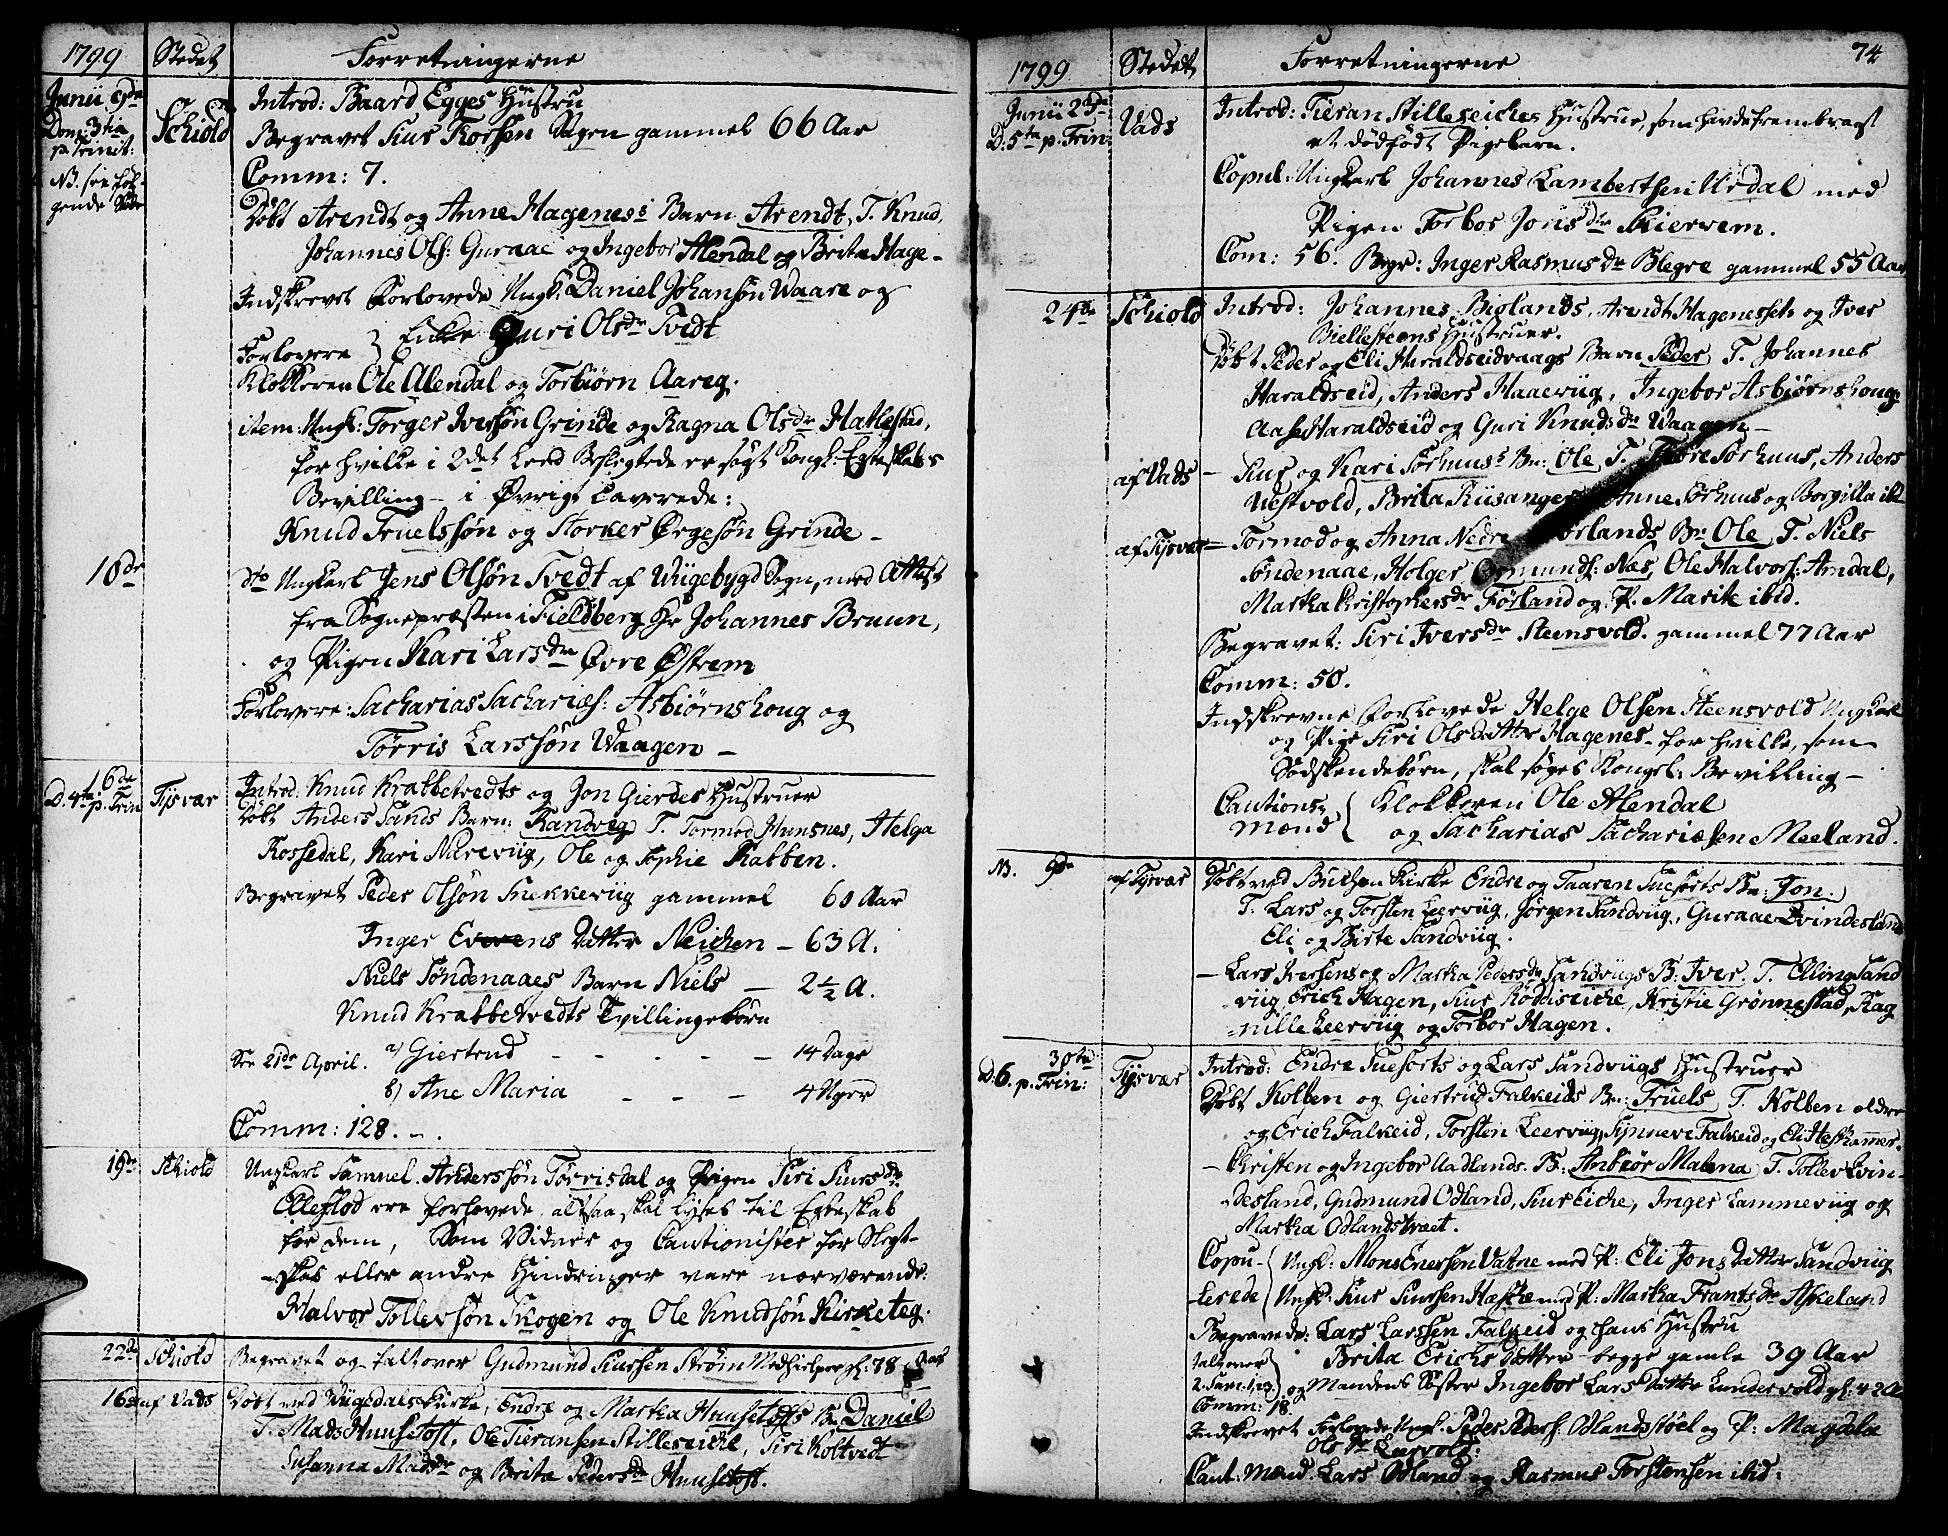 1799 Stedet Forretningerne
Junii 9de Schiold Introd: Baard Egges Hustru
Dom: 3tia p. Trinit: Begravet Siur Korsen Sogn gammel 66 Aar
NB. see føl- Comm: 7.
gende Side Døbt Arendt og Anne Hageness Barn Arendt, T. Knud,
Johannes Ols: Guraae og Ingebor Alendal og Brita Hage-
Indskrevet Forlovede Ungk: Daniel Johansøn Waare og
Enke Guri Olsdr Tvedt
Forlovere
Klokkeren Ole Alendal og Torbiørn Aareg.
item: Ungk: Torger Iversøn Grinde og Ragna Olsdr Hatlestad,
for hvilke i 2det Leed Beslegtede er søgt Kongl: Egteskabs
Bevilling - i Øvrigt Caverede:
Knud Truelssøn og Storker Ørgesøn Grinde -
10de dto Ungkarl Jens Olsøn Tvedt af Wiigebygd Sogn, med Attest
fra Sognepræsten i Fieldberg Hr Johannes Bruun,
og Pigen Kari Larsdr Øvre Østrem
Forlovere: Sacharias Sachariæs: Asbiørnshoug og
Tørris Larssøn Waagen -
16de D. 4ta p. Trin Tysvær Introd. Knud Krabbetvedts og Jon Gierdes Hustruer
Døbt Anders Sands Barn: Randvig T. Tormod Hunsnes, Helga
Rossedal, Kari Nareviig, Ole og Sophie Stabben.
Begravet Peder Olsøn Snekkeviig gammel 60 Aar
Inger Evens Datter Neichen - 63 A.
Niels Søndenaaes Barn Niels - 2½ A.
Knud Krabbetvedts Tvillingebørn
See 21de April. a) Giertrud - - - - - 14 Dage
b) Ane Maria - - - 4 Uger
Comm: 128. -.
19de Schiold Ungkarl Samuel Anderssøn Tørrisdal og Pigen Siri Siursdr
Elleflod ere forlovede, altsaa skal lyses til Egteskab
for dem, Som Vidner og Cautionister for Slegt-
-skab eller andre Hindringer vare nærværende:
Halvor Tollevsøn Skogen og Ole Knudsøn Kirketeg.
22de Schiold Begravet og talt over Gudmund Siursen Strøm gl: 78 Aar
16de af Vads Døbt ved Wiigedals Kirke, Endre og Martha Huusetofts Bn Daniel
T. Mads Huusetoft, Ole Tieransen Stilleseiche, Siri Koltvedt
Susanna Madsdr og Brita Pedersdr Huusetoft.
1799 Stedet Forretningerne 74
Junii 23de Vads Introd: Tieran Stilleseiches Hustrue, som havde frembragt
D: 5ta p. Trin: et dødfødt Pigebarn.
Copul: Ungkarl Johannes Lambertsen Urdal med
Pigen Torbor Jonsdr Skiervem.
Com: 56. Begr: Inger Rasmusdr Blegre gammel 55 Aar
24de Schiold Introd: Johannes Biølands, Arendt Hagenesset og Iver
Biellesteens Hustruer.
Døbt Peder og Eli Haraldseidvaags Barn Peder T. Johannes
Haraldseid, Anders Haaeviig, Ingebor Asbiørnshoug,
Aase Haraldseid og Guri Knudsdr Waagen -
af Vads - Siur og Kari Sørhuus's Bn: Ole T. Tore Sørhuus, Anders
Uestvold, Brita Riisanger, Anne Sørhuus og Borgilla ibd
af Tysvær - Tormod og Anna Nedre Førlands Bn Ole T. Niels
Søndenaae, Holger Osmunds: Næs, Ole Halvors: Amdal,
Martha Kristophersdr Førland og P. Marite ibid.
Begravet: Siri Iversdr Steensvold gammel 77 Aar
Comm: 50.
Indskrevne Forlovede Helge Olsen Steensvold Ungkarl
og Pige Siri Olsdatter Hagenes - for hvilke, som
Sødskendebørn, skal søges Kongel: Bevilling -
Cautions- Klokkeren Ole Alendal
mænd og Sacharias Sachariæsen Meeland.
NB. 9de af Tysvær Døbt ved Buchen Kirke Endre og Taaren Sueforts Bn: Jon.
T. Lars og Torsten Leerviig, Jørgen Sandviig, Guraae Qvindesland
Eli og Birte Sandviig.
- Lars Iversens og Martha Pedersdr Sandviigs B: Iver. T. Elling Sand
viig Erich Hagen, Siur Røddiseiche, Kristie Grønnestad, Rag
-nille Leerviig og Torbor Hagen.
30te D: 6. p. Trin: Tysvær Introd: Endre Sueforts og Lars Sandviigs Hustruer
Døbt Kolben og Giertrud Falkeids Bn: Truels T. Kolben ældre
og Erich Falkeid, Torsten Leerviig, Synneve Falkeid og Eli Heshammer.
- Kristen og Ingebor Aadlands B: Anbiør Malena T. Tollev Qvin-
desland, Gudmund Odland, Siur Eiche, Inger Lammeviig og
Martha Odlandstvæt.
Copu- Ungk: Mons Enersen Vatne med P: Eli Jons Datter Sandviig
-lerede Ungk: Siur Siursen Hæskie med P: Martha Frantsdr Askeland
Begravede: Lars Larssen Falkeid og hans Hustru
talt over Brita Erichs Datter begge gamle 39 Aar
2. Sam. 1,23. og Mandens Søster Ingebor Lars Datter Lundervold gl: 42 A
Comm: 18.
Indskrevet Forlovede Ungk: Peder Peders: Odlandstøel og P: Magdela
Olsdr Leervold:
Caut: Mænd Lars Odland og Rasmus Torstensen ibid: